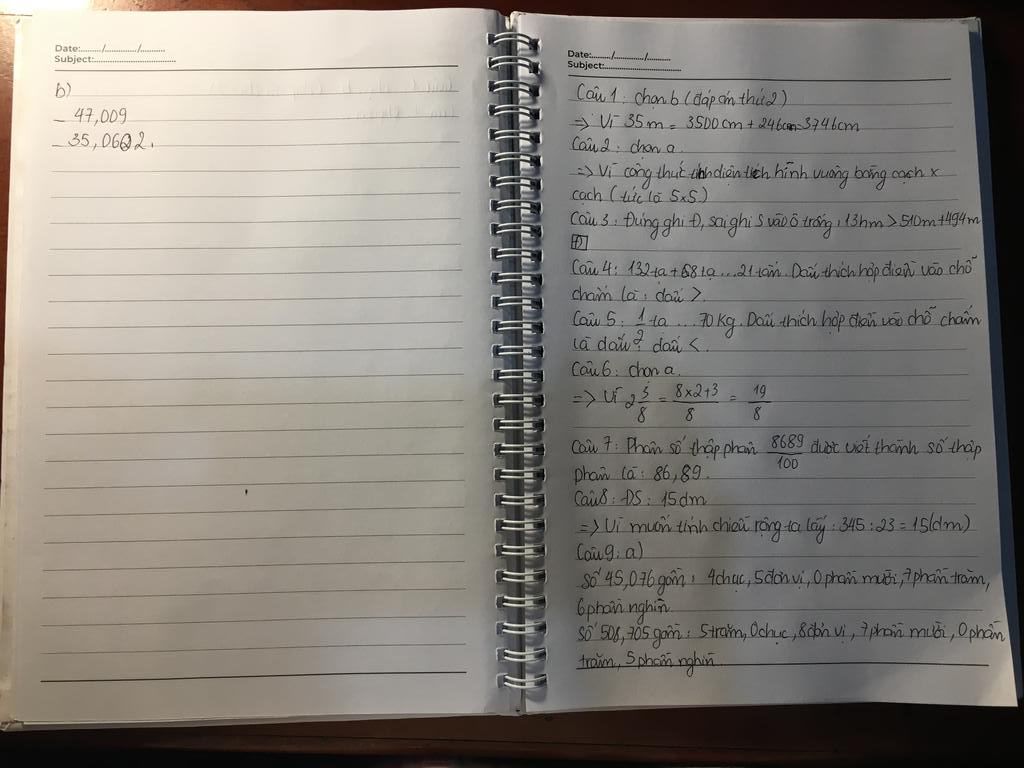 Date:......../............/..........
Subject:..............................
b)
_ 47,009
_ 35,0622.
Date:......../............/..........
Subject:..............................
Câu 1: chọn b (đáp án thứ 2)
=> Vì 35m = 3500cm + 246cm = 3746cm
Câu 2: chọn a.
=> Vì công thức tính diện tích hình vuông bằng cạch x
cạch (tức là 5x5)
Câu 3: Đúng ghi Đ, sai ghi S vào ô trống: 13hm > 510m + 494m
Đ
Câu 4: 132 tạ + 68 tạ ... 21 tấn. Dấu thích hợp điền vào chỗ
chấm là: dấu >.
Câu 5: 1/2 tạ ... 70kg. Dấu thích hợp điền vào chỗ chấm
là dấu? dấu <.
Câu 6: chọn a.
=> Vì 2 3/8 = 8x2+3/8 = 19/8
Câu 7: Phân số thập phân 8689/100 được viết thành số thập
phân là: 86,89.
Câu 8: ĐS: 15dm
=> Vì muốn tính chiều rộng ta lấy: 345 : 23 = 15(dm)
Câu 9: a)
Số 45,076 gồm: 4 chục, 5 đơn vị, 0 phần mười, 7 phần trăm,
6 phần nghìn
Số 508,705 gồm: 5 trăm, 0 chục, 8 đơn vị, 7 phần mười, 0 phần
trăm, 5 phần nghìn